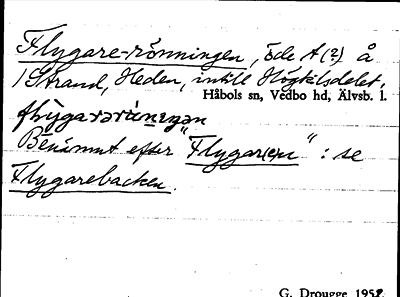 Flygare-rönningen, öde A(?) å
1 Strand, Heden, intill Högkilsdalet.
Håbols sn, Vedbo hd, Älvsb. l.
Benämnt efter "Flygar(e)n": se
Flygarebacken.
G. Drougge 1952.